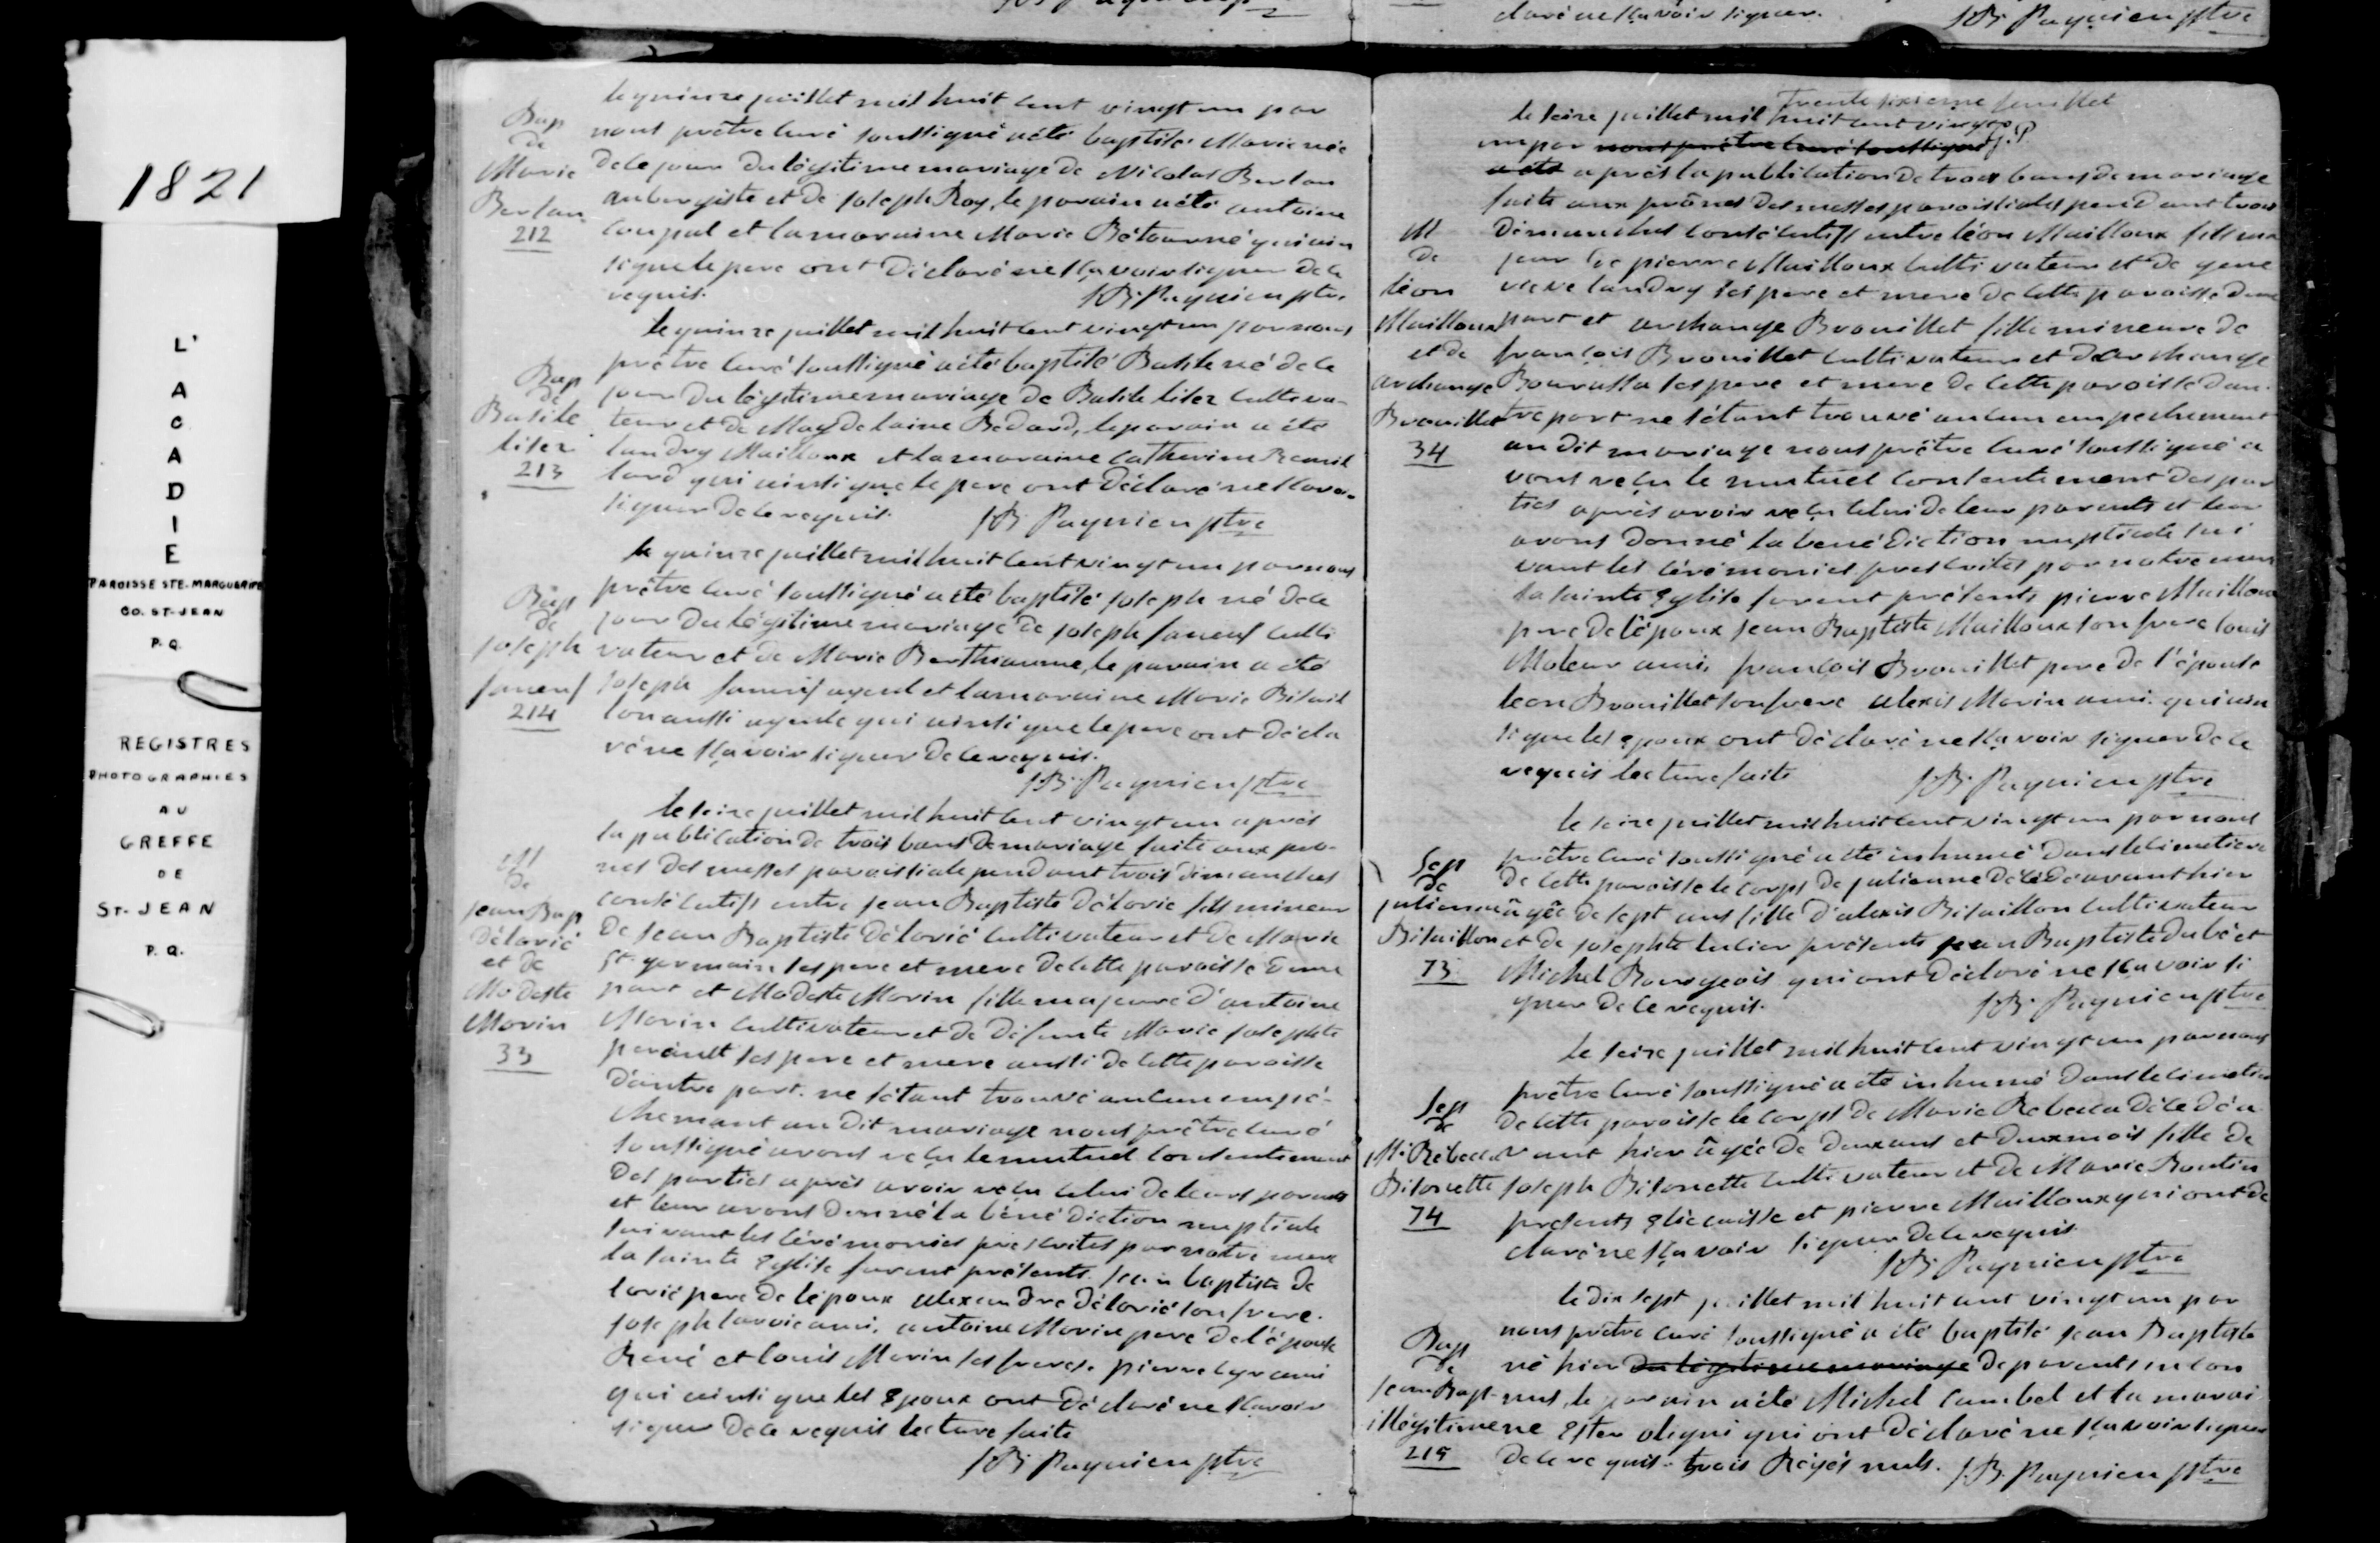 1821
L'
A
C
A
D
I
E
PAROISSE STE-MARGUERITE
CO. ST-JEAN
P.Q.
REGISTRES
PHOTOGRAPHIES
AU
GREFFE
DE
ST-JEAN
P.Q.
Bap
de
Marie
Berlan
212
le quinze juillet mil huit cent vingt un par
nous prêtre curé soussigné a été baptisée Marie née
de ce jour du légitime mariage de Nicolas Berlan
aubergiste et de Joseph Roy, le parain a été antoine
Coupal et la maraine Marie Bétourné qui ain
si que le pere ont déclaré ne sçavoir signer de ce
requis. JB. Paquien ptre
Bap
de
Basile
liser
213
le quinze juillet mil huit cent vingt un par nous
prêtre curé soussigné a été baptisé Basile né de ce
jour du légitime mariage de Basile liser cultiva-
teur et de Magdelaine Bedard, le parain a été
landry Mailloux et la maraine Catherine
lard qui ainsi que le pere ont déclaré ne
signer de ce requis. JB. Paquien ptre
Bap
de
joseph
faneuf
214
le quinze juillet mil huit cent vingt un par nous
prêtre curé soussigné a été baptisé joseph né de ce
jour du légitime mariage de joseph faneuf culti
vateur et de Marie Berthiaume, le parain a été
joseph faneuf ayeul et la maraine Marie Bisail
lon aussi ayeule qui ainsi que le pere ont décla
ré ne sçavoir signer de ce requis.
JB. Paquien ptre
M
de
jean Bap
délorié
et de
Modeste
Morin
33
le seize juillet mil huit cent vingt un après
la publication de trois bans de mariage faite aux pro-
nes des messes paroissiale pendant trois dimanches
consécutifs entre jean Baptiste délorié fils mineur
de jean Baptiste délorié cultivateur et de Marie
St. germain ses pere et mere de cette paroisse d'une
part et Modeste Morin fille majeure d'antoine
Morin cultivateur et de défunte Marie josephte
perault ses pere et mere aussi de cette paroisse
d'autre part. ne s'étant trouvé aucun empé-
chement au dit mariage nous prêtre curé
soussigné avons reçu le mutuel consentement
des parties après avoir reçu celui de leurs parents
et leur avons donné la bénédiction nuptiale
suivant les cérémonies prescrites par notre mere
la sainte Eglise furent présents jean baptiste de
lorié pere de l'époux alexandre délorié son frere.
joseph lavoie ami, antoine Morin pere de l'épouse
René et louis Morin ses freres. pierre cyr ami
qui ainsi que les Epoux ont déclaré ne sçavoir
signer de ce requis lecture faite
JB. Paquien ptre
claré ne sçavoir signer. JB. Paquien ptre
trente sixieme feuillet
M
de
léon
Mailloux
et de
archange
Brouillet
34
le seize juillet mil huit cent vingt
un par nous prêtre curé soussigné
a été après la publication de trois bans de mariage
faite aux prônes des messes paroissiales pendant trois
dimanches consécutifs entre léon Mailloux fils ma
jeur de pierre Mailloux cultivateur et de gene
vieve landry ses pere et mere de cette paroisse d'une
part et archange Brouillet fille mineure de
françois Brouillet cultivateur et d'archange
Bourassa ses pere et mere de cette paroisse d'au
tre part ne s'étant trouvé aucun empechement
au dit mariage nous prêtre curé soussigné a
vons reçu le mutuel consentement des par
ties après avoir reçu celui de leur parents et leur
avons donné la bénédiction nuptiale sui
vant les cérémonies prescrites par notre mere
la sainte Eglise furent présents pierre Mailloux
pere de l'époux jean Baptiste Mailloux son frere louis
Moleur ami, françois Brouillet pere de l'épouse
leon Brouillet son frere alexis Morin ami. qui ain
si que les epoux ont déclaré ne sçavoir signer de ce
requis lecture faite JB. Paquien ptre
Sep
de
julienne
Bisaillon
73
le seize juillet mil huit cent vingt un par nous
prêtre curé soussigné a été inhumé dans le cimetiere
de cette paroisse le corps de julienne décédé avant hier
âgée de sept ans fille d'alexis Bisaillon cultivateur
et de josephte lucier présents jean Baptiste dubé et
Michel Bourgeois qui ont déclaré ne sçavoir si
gner de ce requis. JB. Paquien ptre
Sep
de
M. Rebecca
Bisonette
74
le seize juillet mil huit cent vingt un par nous
prêtre curé soussigné a été inhumé dans le cimetie
de cette paroisse le corps de Marie Rebecca décédé a
vant hier âgée de deux ans et deux mois fille de
joseph Bisonette cultivateur et de Marie Boutin
présents Elie caisse et pierre Mailloux qui ont dé
claré ne sçavoir signer de ce requis
JB. Paquien ptre
Bap
de
jean Bapt-
illégitime
215
le dix sept juillet mil huit cent vingt un par
nous prêtre curé soussigné a été baptisé jean Baptiste
né hier du légitime mariage de parents incon
nus, le parain a été Michel Cambel et la marai
ne Ester qui ont déclaré ne sçavoir signer
de ce requis. trois Rayés nuls. J.B. Paquien ptre